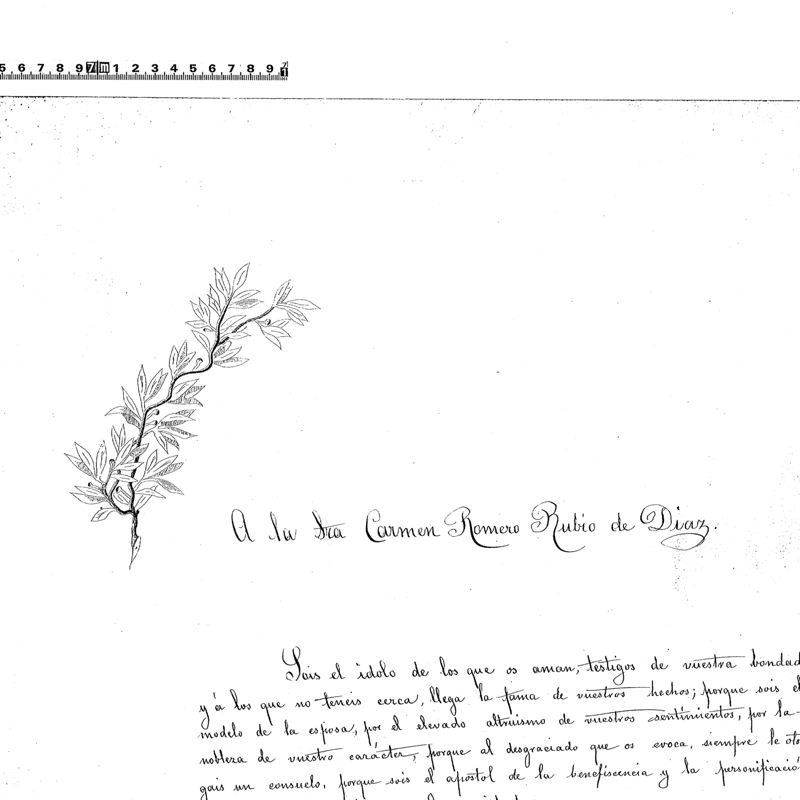 5 6 7 8 9 7 m 1 2 3 4 5 6 7 8 9
A la Sra Carmen Romero Rubio de Diaz.
Sois el idolo de los que os aman, testigos de vuestra bondad
y á los que no teneis cerca, llega la fama de vuestros hechos; porque sois el
modelo de la esposa, por el elevado altruismo de vuestros sentimientos, por la
nobleza de vuestro carácter, porque al desgraciado que os evoca, siempre le oto
gais un consuelo, porque sois el apostol de la beneficencia y la personificació